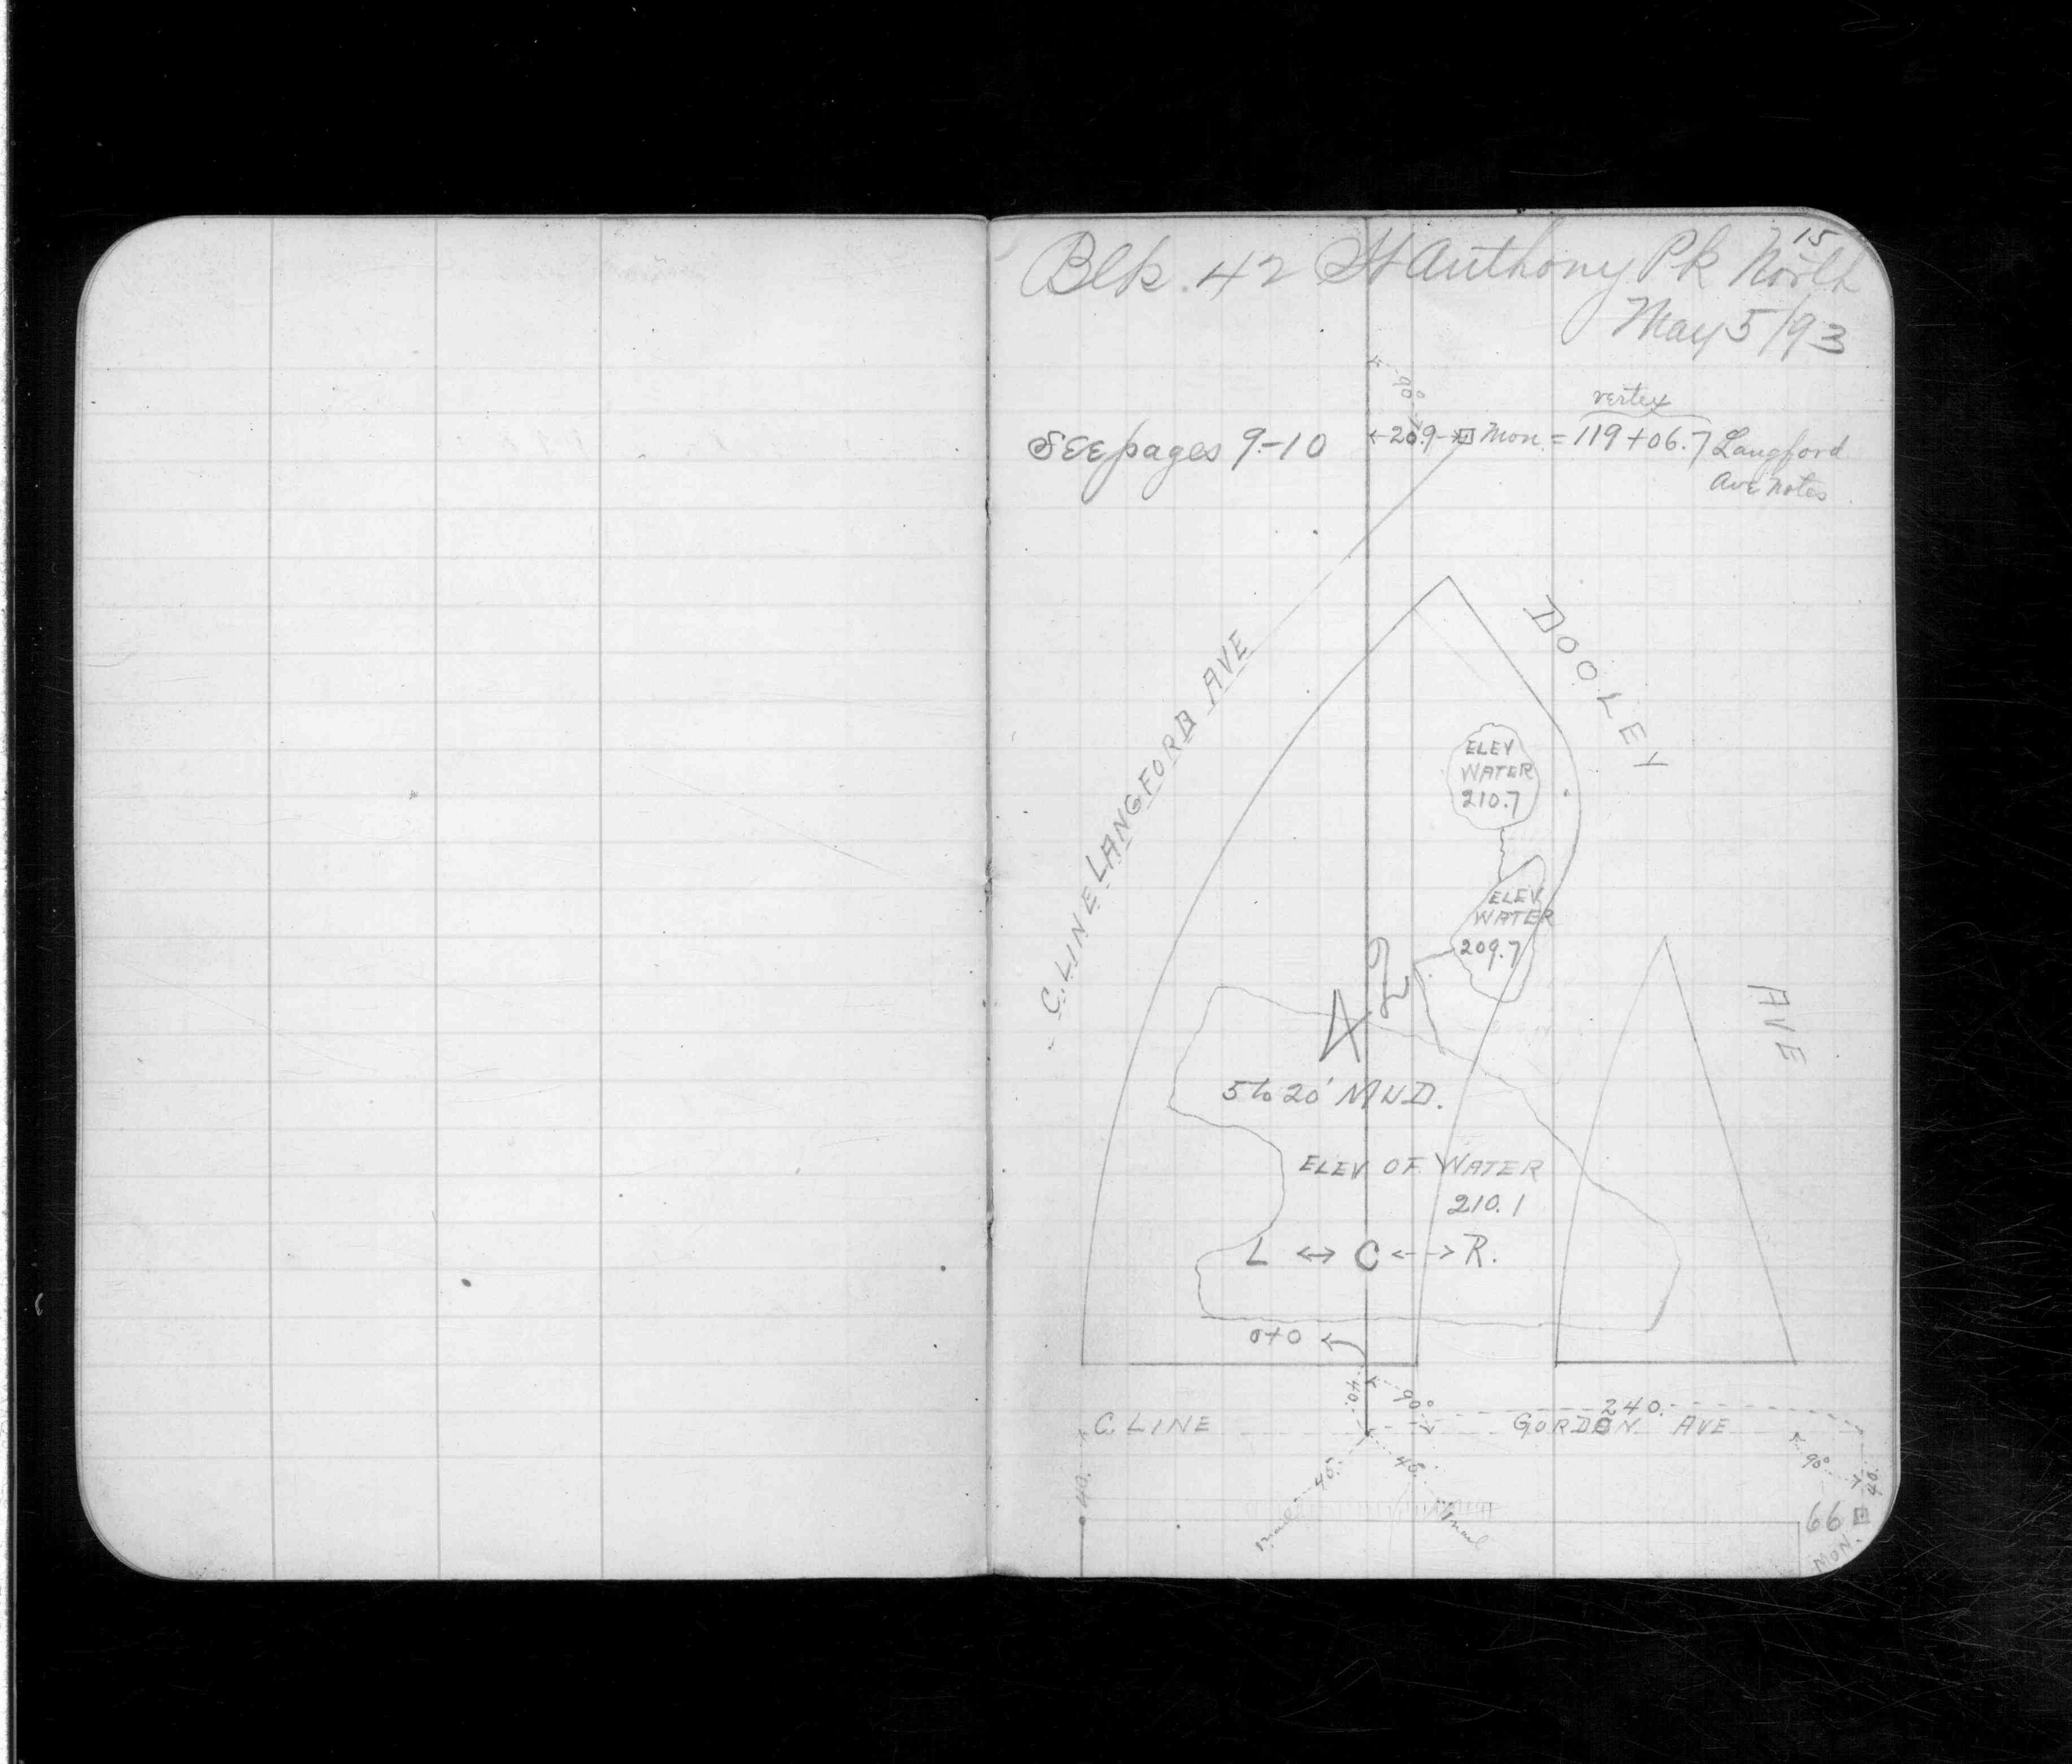 15
Blk. 42 St Anthony Pk North
May 5/93
90°
vertex
SEE pages 9-10 ←209→ Mon = 119+06.7 Langford
Ave Notes
C. LINE LANGFORD AVE
DOOLEY
AVE
ELEV
WATER
210.7
ELEV
WATER
209.7
42
5 to 20' MUD.
ELEV OF WATER
210.1
L ↔ C ←--→ R.
0+0 ←
40.
90°
240.
C. LINE GORDON AVE
40.
45.
45.
90°
40.
66
MON.